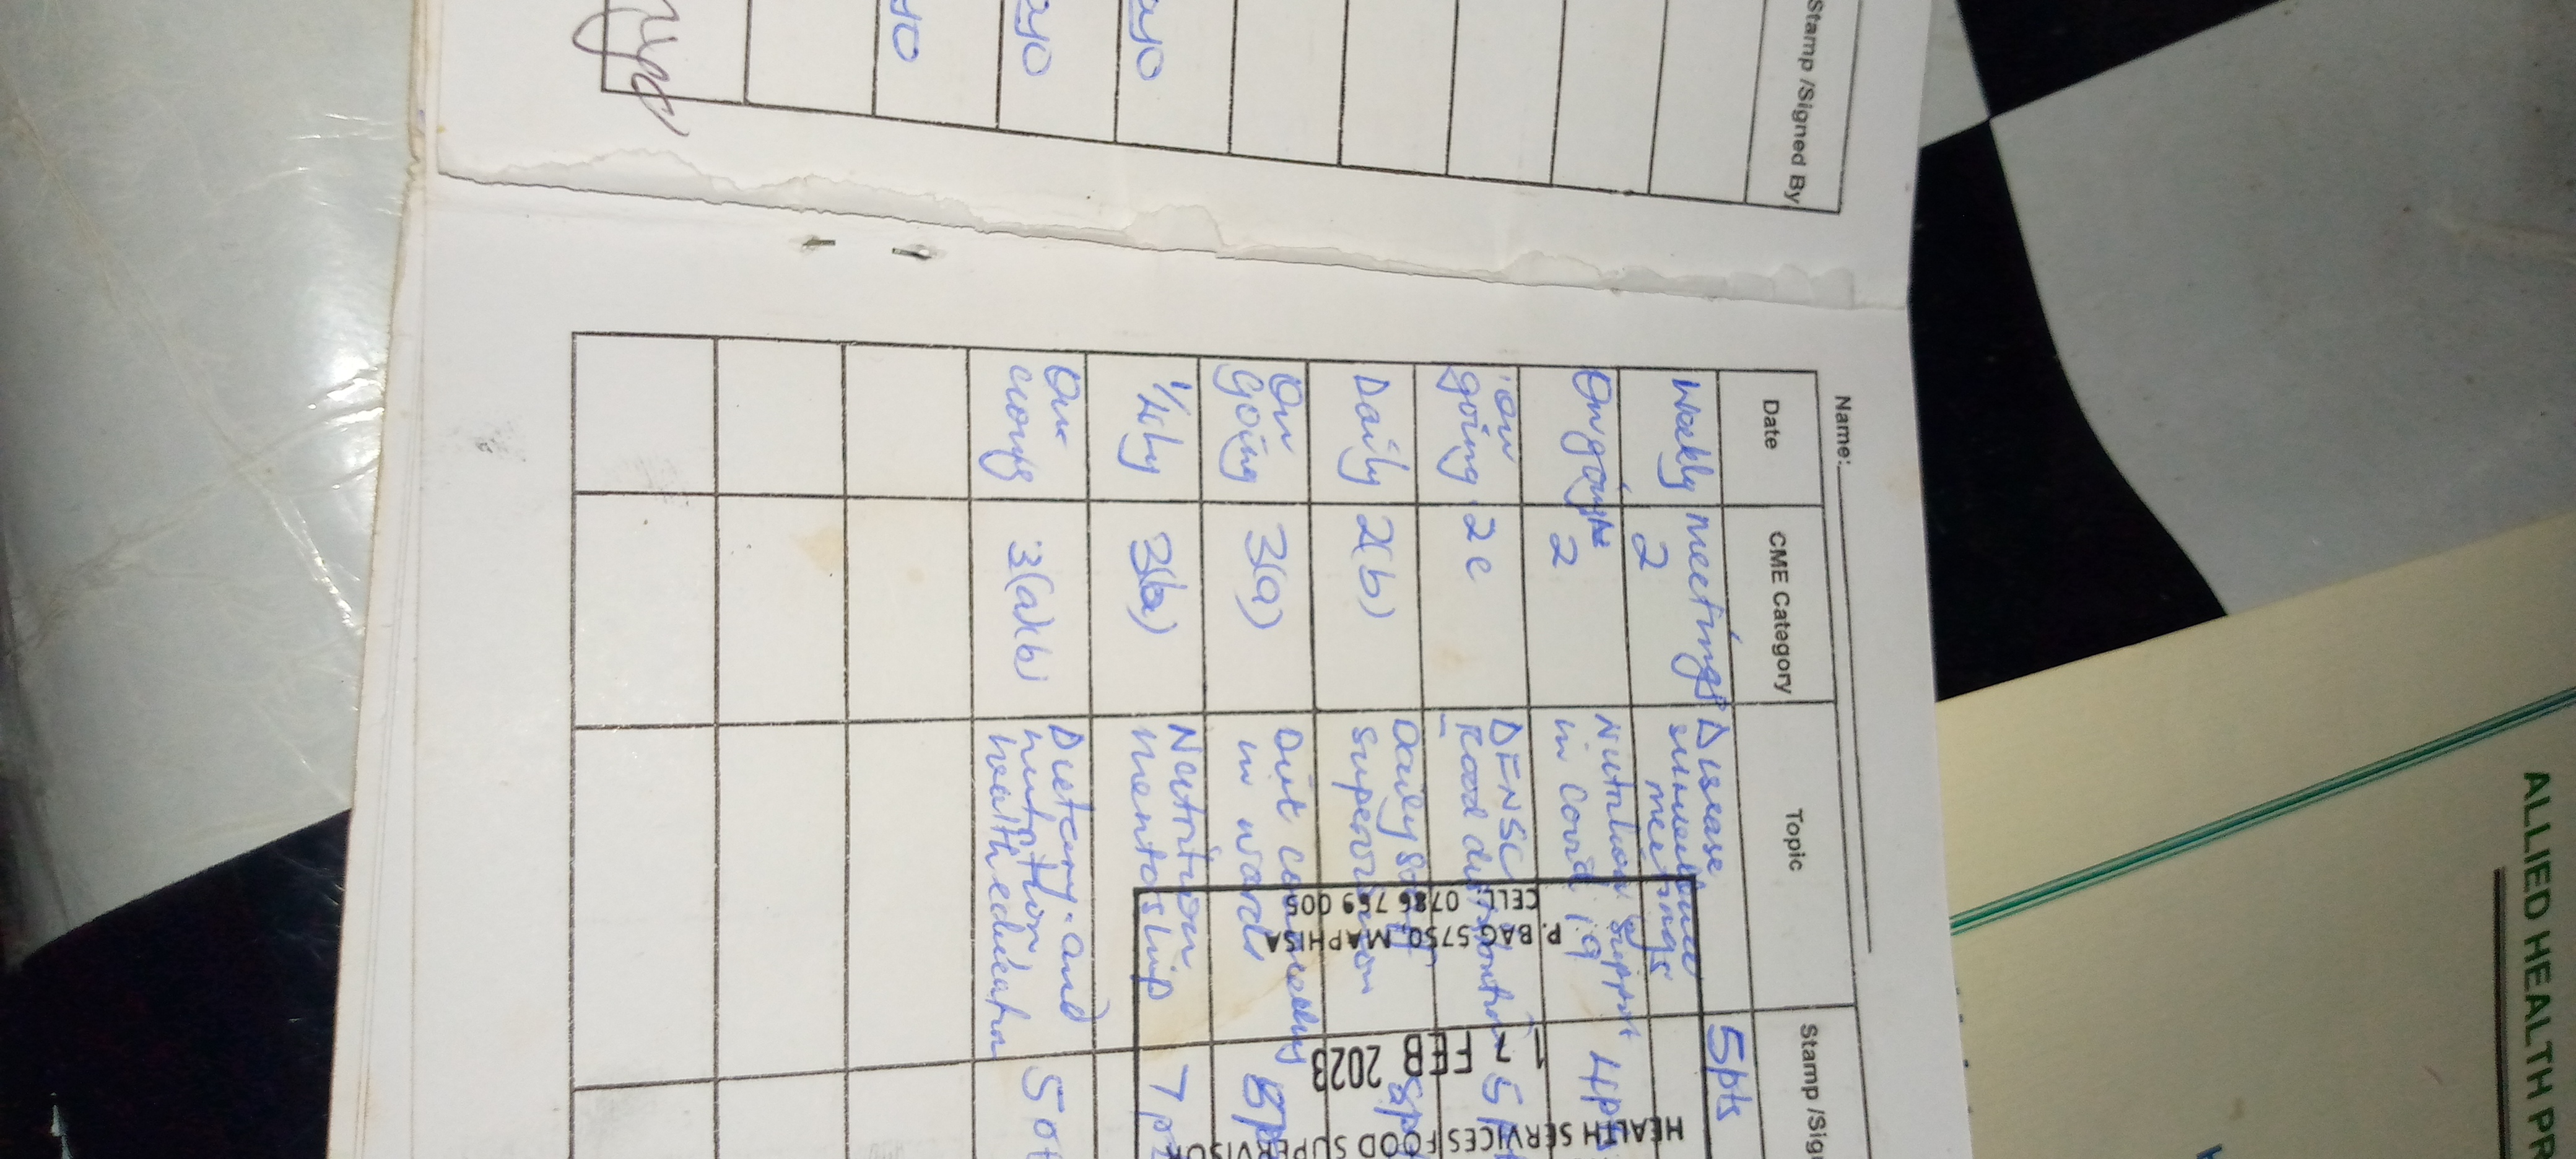 Stamp /Signed By
Name:
Date CME Category Topic Stamp /Sig
Weekly meetings Disease 5pts
2 surveillance
meetings
Ongoing 2 Nutrition support 4p
in Covid 19
on going 2c DFNSC 5p
Food distribution
Daily 2(b) Daily 5p
supervision
On going 3(a) Diet 8p
in wards
1/4ly 3(b) Nutrition 7p
mentorship
On going 3(a)(b) Dietary and 5
nutrition
health education
HEALTH SERVICES FOOD SUPERVISOR
17 FEB 2023
P. BAG 5750, MAPHISA
CELL: 0786 769 005
ALLIED HEALTH PR